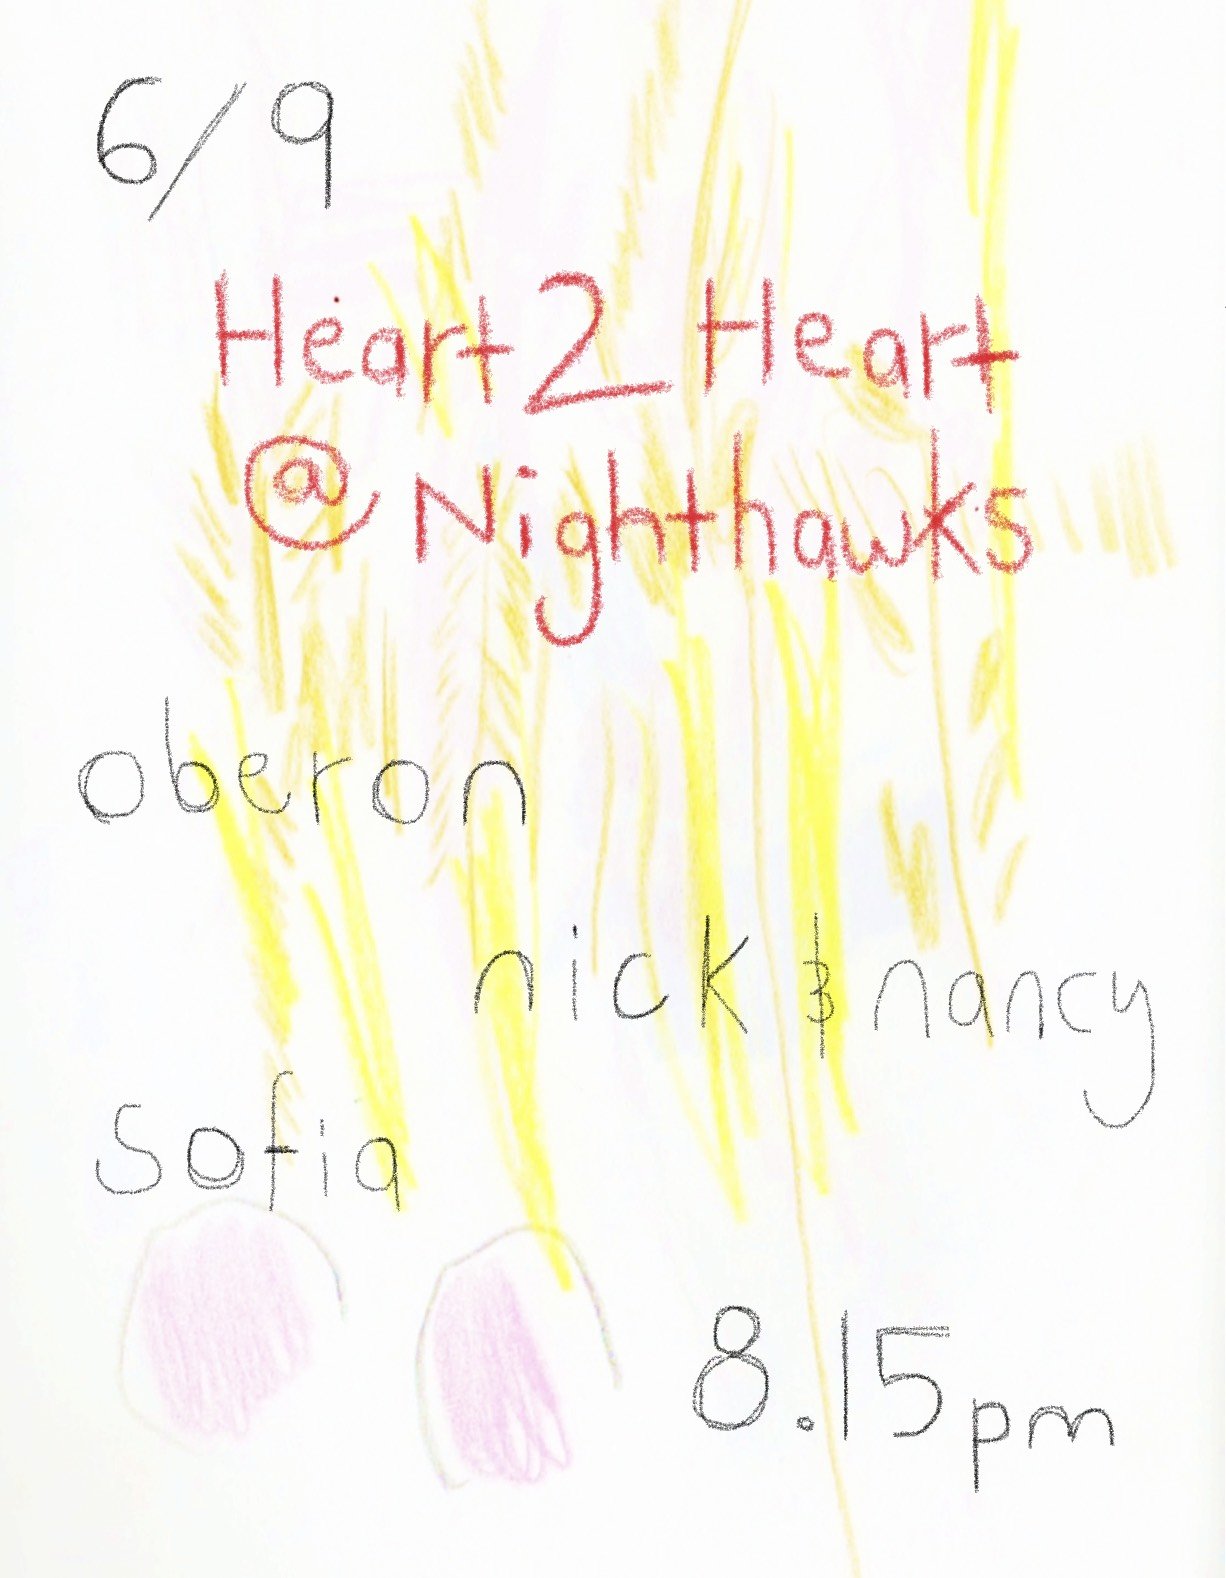 6/9
Heart 2 Heart
@ Nighthawks
oberon
nick & nancy
sofia
8.15pm